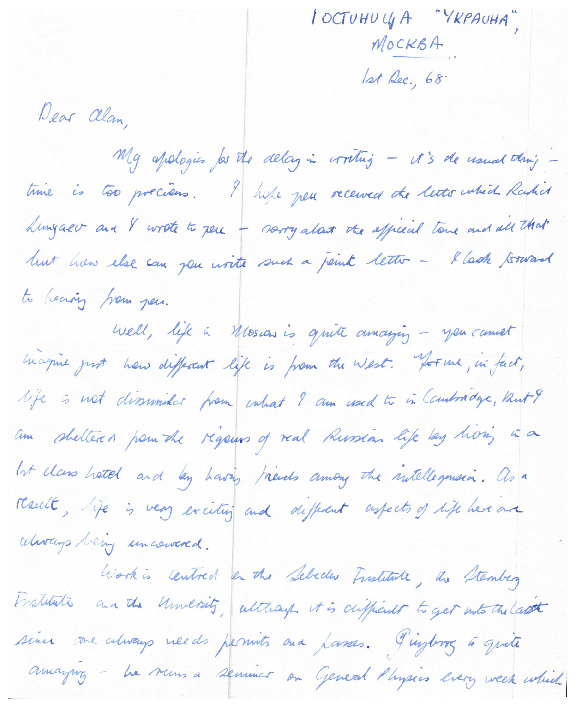 ГОСТИНИЦА "УКРАИНА",
МОСКВА
1st Dec., 68
Dear Alan,
My apologies for the delay in writing – it's the usual thing –
time is too precious. I hope you received the letter which Rashid
Sunyaev and I wrote to you – sorry about the official tone and all that
but how else can you write such a joint letter – I look forward
to hearing from you.
Well, life in Moscow is quite amazing – you cannot
imagine just how different life is from the West. For me, in fact,
life is not dissimilar from what I am used to in Cambridge, but I
am sheltered from the rigours of real Russian life by living in a
1st class hotel and by having friends among the intelligensia. As a
result, life is very exciting and different aspects of life here are
always being uncovered.
Work is centred on the Lebedev Institute, the Sternberg
Institute and the University, although it is difficult to get into the
since one always needs permits and passes. Ginzburg is quite
amazing – he runs a seminar on General Physics every week which